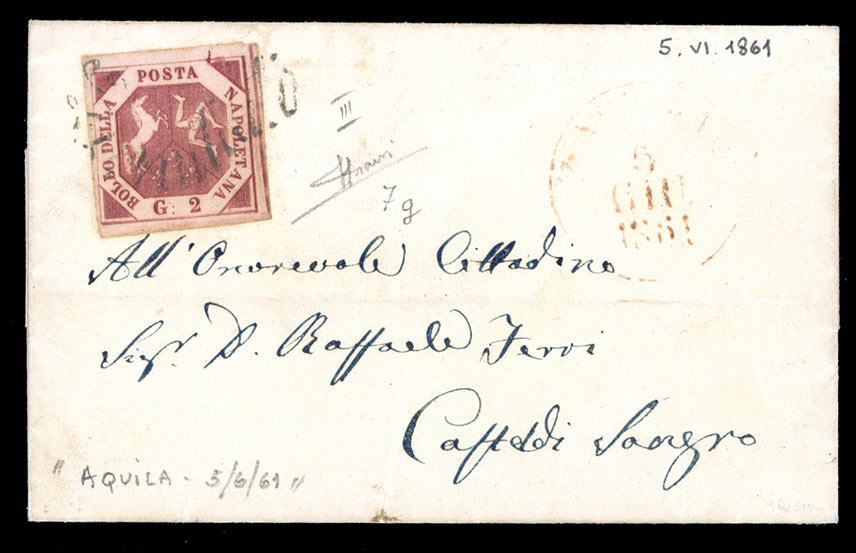 5. VI. 1861
POSTA
BOLLO DELLA
NAPOLETANA
G. 2
III
7g
5
GIU
1861
All' Onorevole Cittadino
Sigr. D. Raffaele
Castel di Sangro
" AQUILA - 5/6/61 "